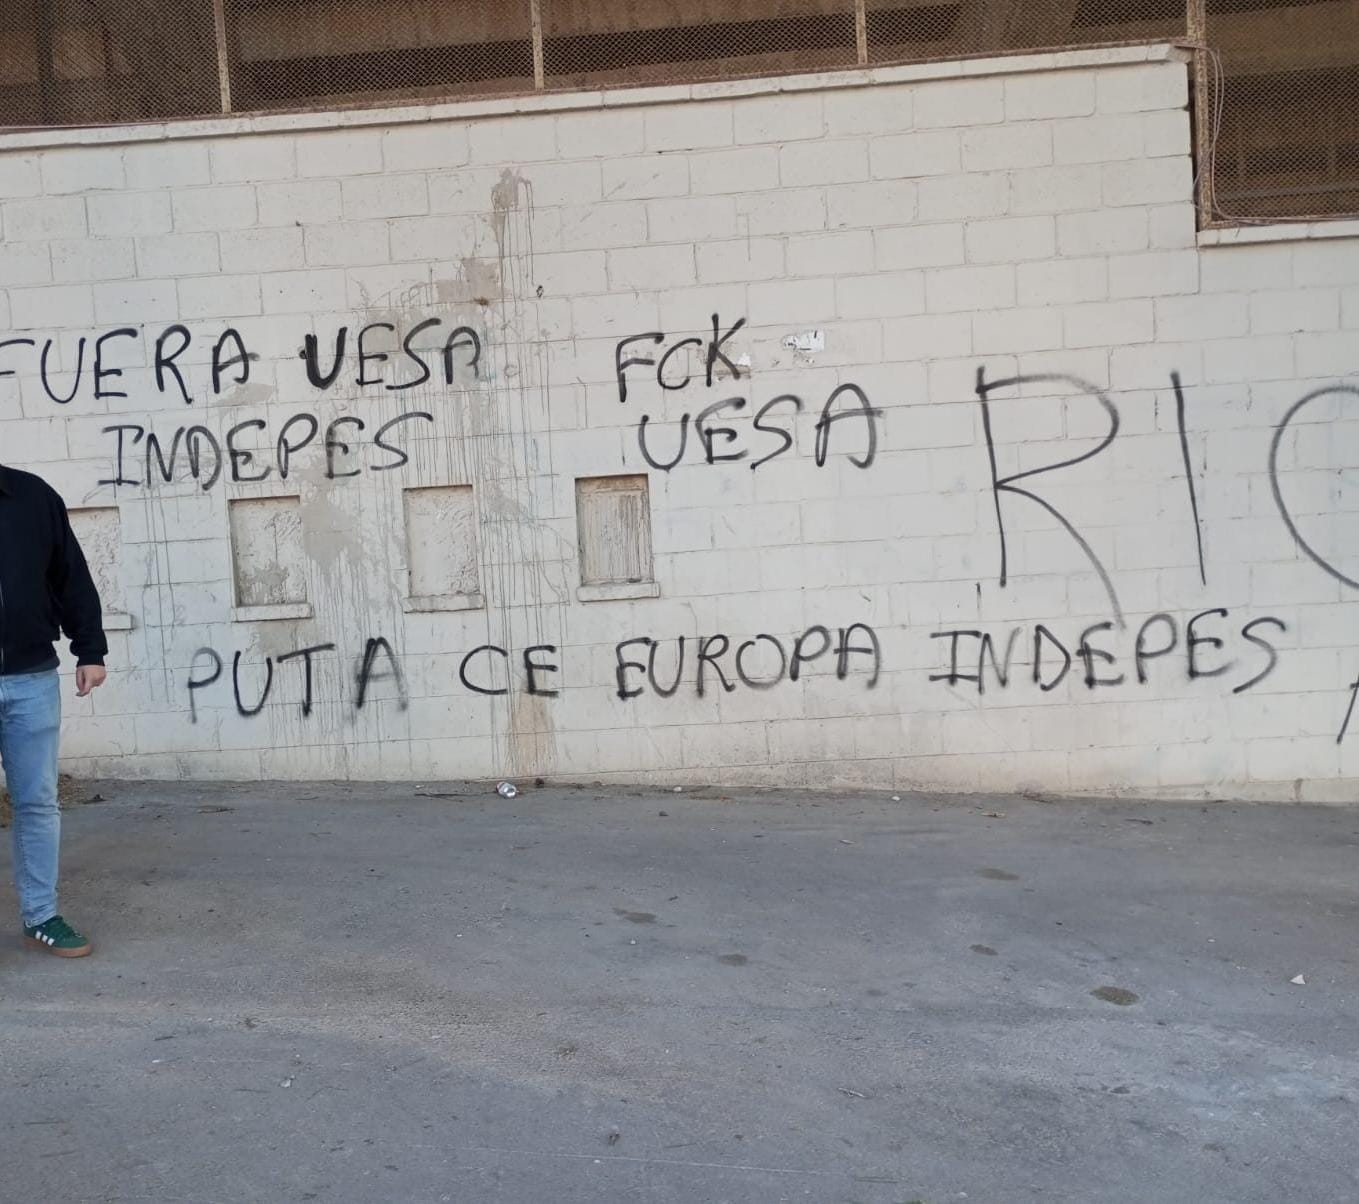 FUERA UESA
INDEPES
FCK
UESA
PUTA CE EUROPA INDEPES